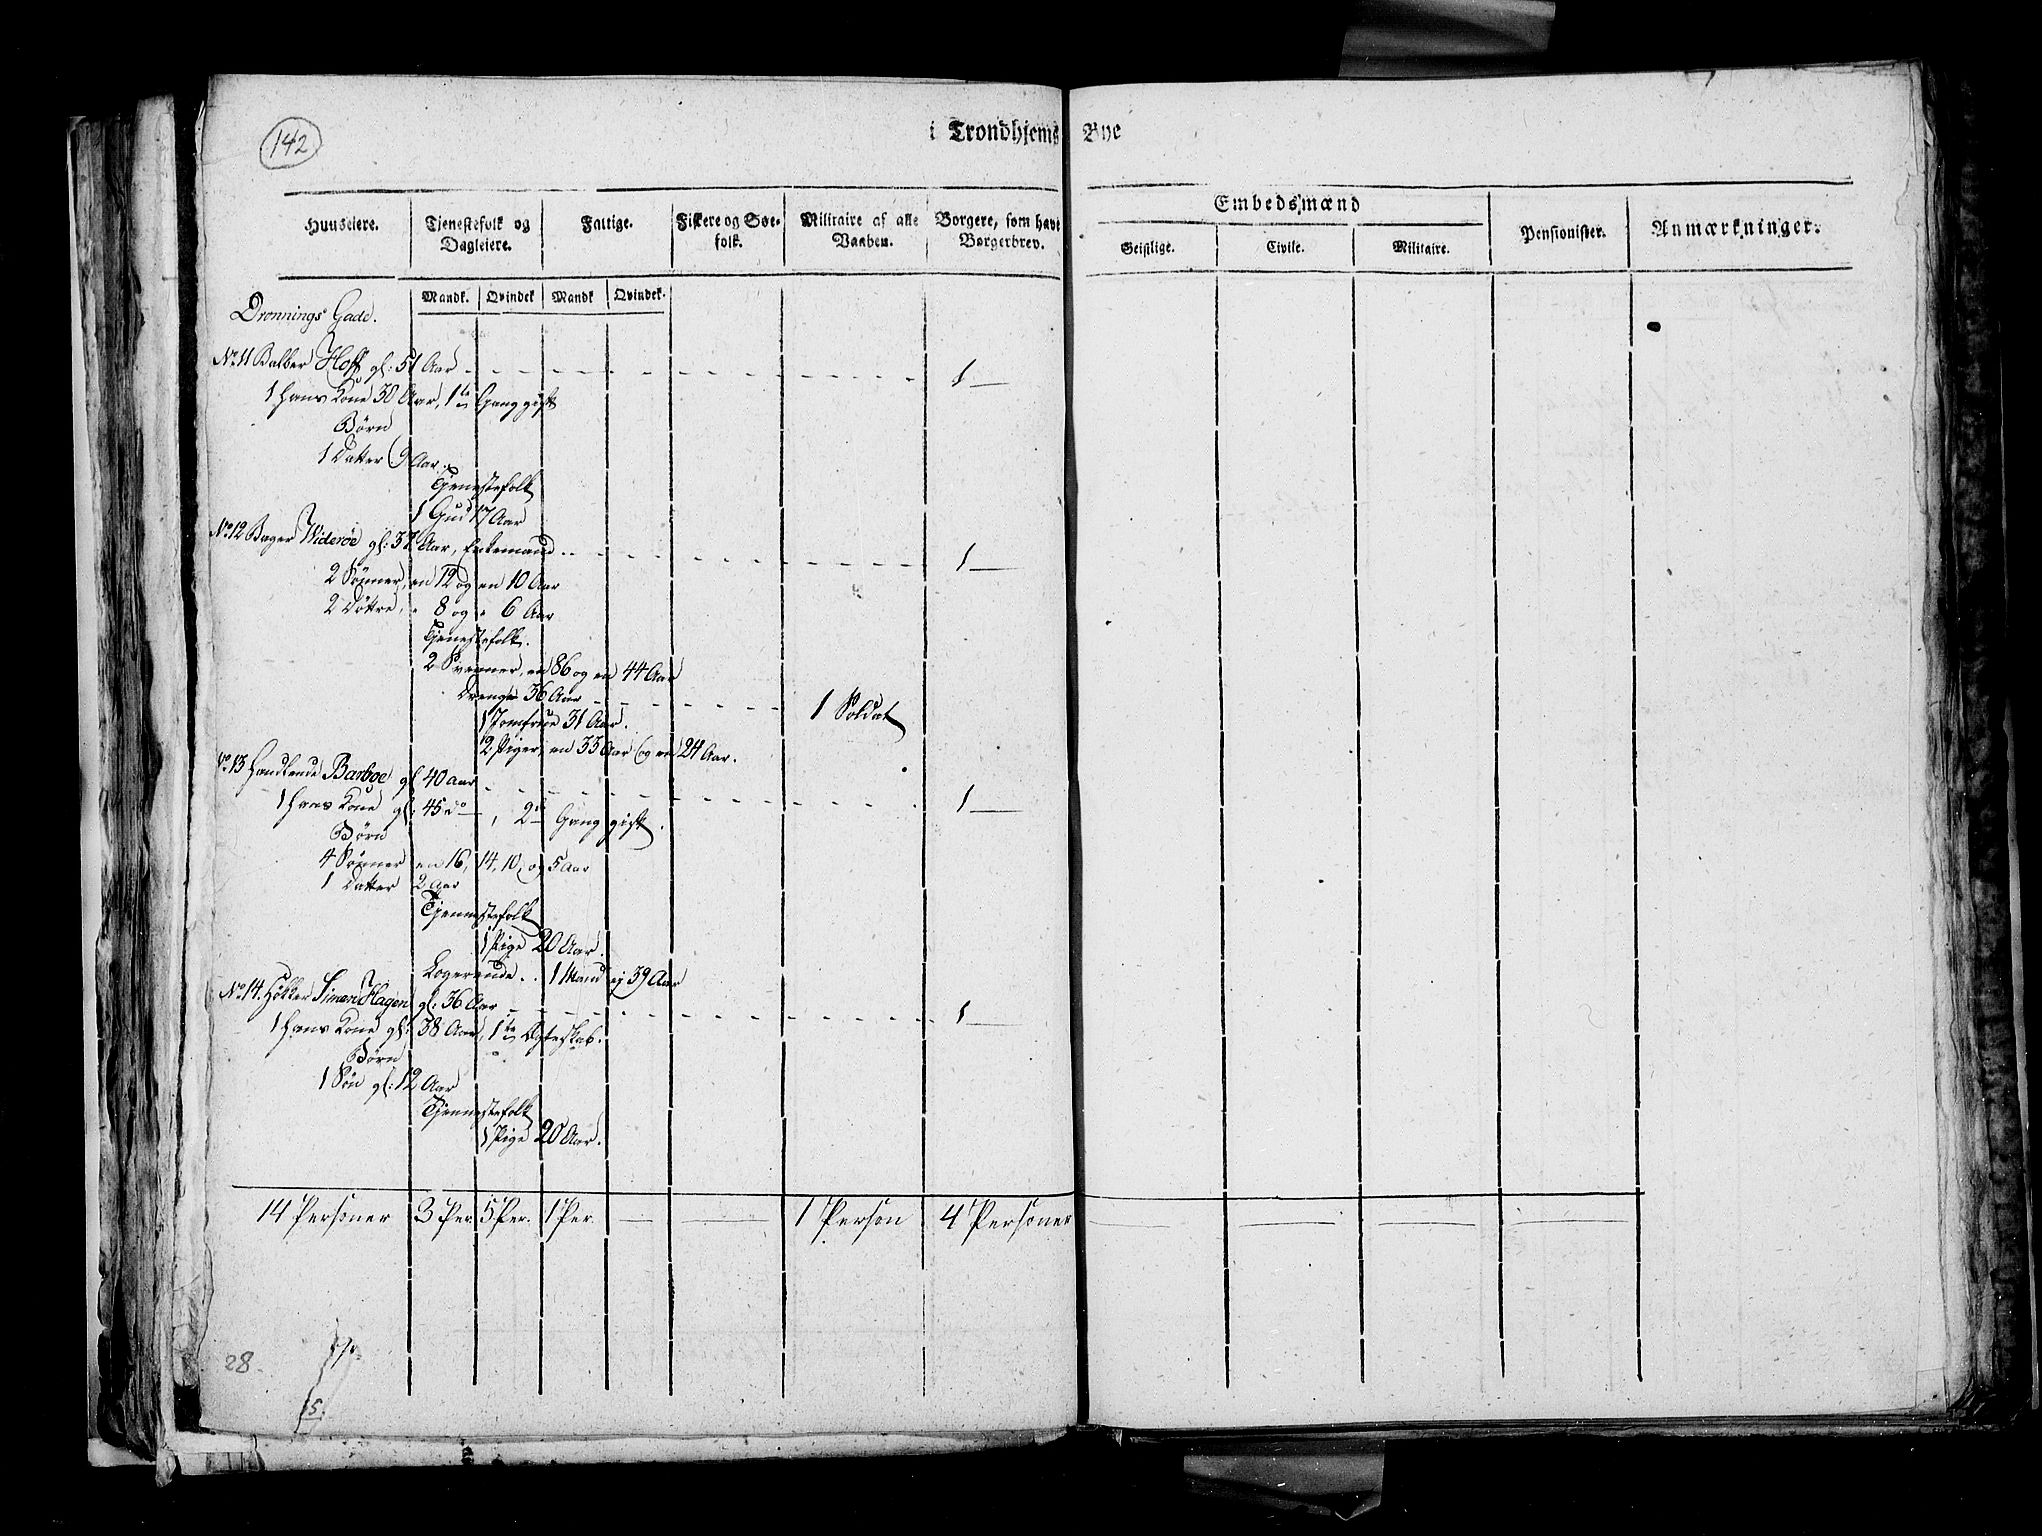 142
i Trondhjems Bye
Huuseiere. Tjenestefolk og Dagleiere. Fattige. Fiskere og Søefolk. Militaire af alle Vaaben. Borgere, som have Borgerbrev. Embedsmænd Pensionister. Anmærkninger.
Geistlige. Civile. Militaire.
Mandk. Qvindek Mandk Qvindek.
Dronnings Gade.
No 11 Balber Hoff gl: 51 Aar 1 —
1 Hans Kone 38 Aar, 1te Gang gift
Børn
1 Datter 9 Aar.
Tjenestefolk
1 Gud 17 Aar
No 12 Bager Widerøe gl: 37 Aar, Enkemand 1 —
2 Sønner, en 12 og en 10 Aar
2 Døttre, " 8 og " 6 Aar
Tjenestefolk.
2 Svenner, en 86 og en 44 Aar
Dreng 36 Aar 1 Soldat
1 Jomfrue 31 Aar.
2 Piger, en 33 Aar og en 24 Aar.
No 13 Handlende Barboe gl 40 aar
1 Hans Kone gl: 45 do —, 2de Gang gift. 1 —
Børn
4 Sønner en 16, 14, 10, og 5 Aar
1 Datter 2 Aar
Tjennestefolk
1 Pige 20 Aar.
Logerende .. 1 Mand 39 Aar
No 14. Høkker Simen Hagen gl: 36 Aar 1 —
1 Hans Kone gl: 38 Aar, 1te Ægteskab.
Børn
1 Søn gl: 12 Aar
Tjennestefolk
1 Pige 20 Aar.
14 Personer 3 Per. 5 Per. 1 Per. — — 1 Person 4 Personer — — — —
28.